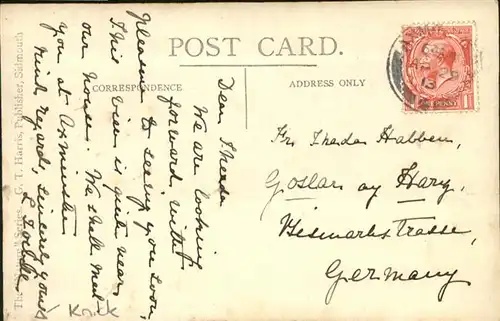 POST CARD.
CORRESPONDENCE
ADDRESS ONLY
Dear Theda
We are looking
forward with
pleasure to seeing you soon,
This view is quite near
our house. We shall meet
you at Axminster
Kind regards, sincerely yours
G. T. Harris, Publisher, Sidmouth
Fr. Theda Habben,
Goslar ay Harz,
Bismarkstrasse,
Germany
ONE PENNY
1
13